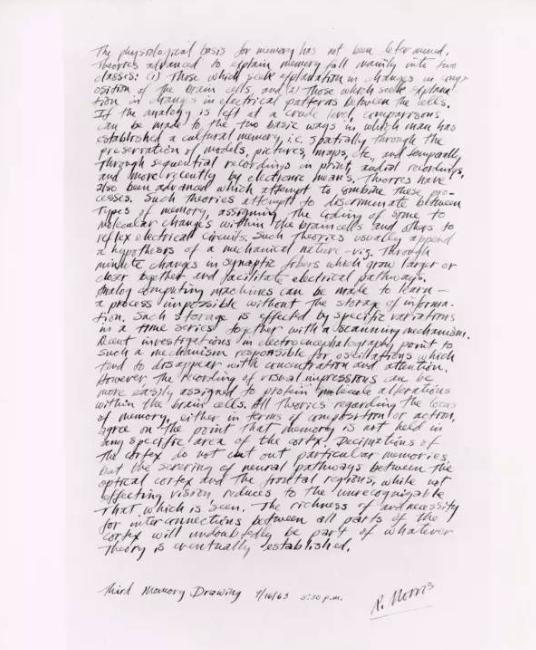 The physiological basis for memory has not been determined.
Theories advanced to explain memory fall mainly into two
classes: (1) Those which seek explanation in changes in comp-
osition of the brain cells, and (2) Those which seek explana-
tion in changes in electrical patterns between the cells.
If the analogy is left at a crude level, comparisons
can be made to the two basic ways in which man has
established a cultural memory, i.e. spatially through the
preservation of models, pictures, maps, etc., and temporally,
through sequential recordings in print, audial recordings,
and more recently by electronic means. Theories have
also been advanced which attempt to combine these pro-
cesses. Such theories attempt to discriminate between
types of memory, assigning the coding of some to
molecular changes within the brain cells and others to
reflex electrical circuits. Such theories usually append
a hypothesis of a mechanical nature - viz. through
minute changes in synaptic fibers which grow larger or
closer together and facilitate electrical pathways.
Analog computing machines can be made to learn —
a process impossible without the storage of informa-
tion. Such storage is effected by specific variations
in a time series together with a scanning mechanism.
Recent investigations in electroencephalography point to
such a mechanism responsible for oscillations which
tend to disappear with concentration and attention.
However the recording of visual impressions can be
more easily assigned to protein molecule alterations
within the brain cells. All theories regarding the locus
of memory, either in terms of composition or action,
agree on the point that memory is not held in
any specific area of the cortex. Decimations of
the cortex do not cut out particular memories,
but the severing of neural pathways between the
optical cortex and the frontal regions, while not
effecting vision, reduces to the unrecognizable
that which is seen. The richness of and necessity
for interconnections between all parts of the
cortex will undoubtedly be part of whatever
theory is eventually established.
Third Memory Drawing 7/16/63 8:30 p.m.
R. Morris